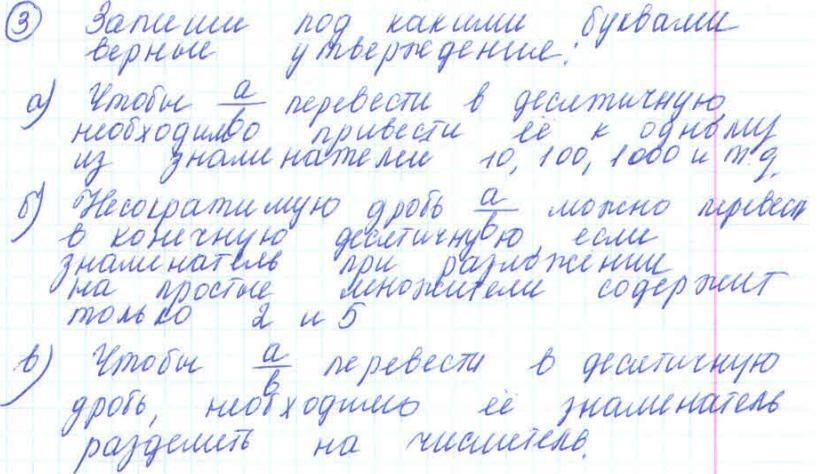 3 Запиши под какими буквами
верные утверждения:
а) Чтобы a/b перевести в десятичную
необходимо привести её к одному
из знаменателей 10, 100, 1000 и т.д.
б) Несократимую дробь a/b можно перевести
в конечную десятичную, если
знаменатель при разложении
на простые множители содержит
только 2 и 5
в) Чтобы a/b перевести в десятичную
дробь, необходимо её знаменатель
разделить на числитель.